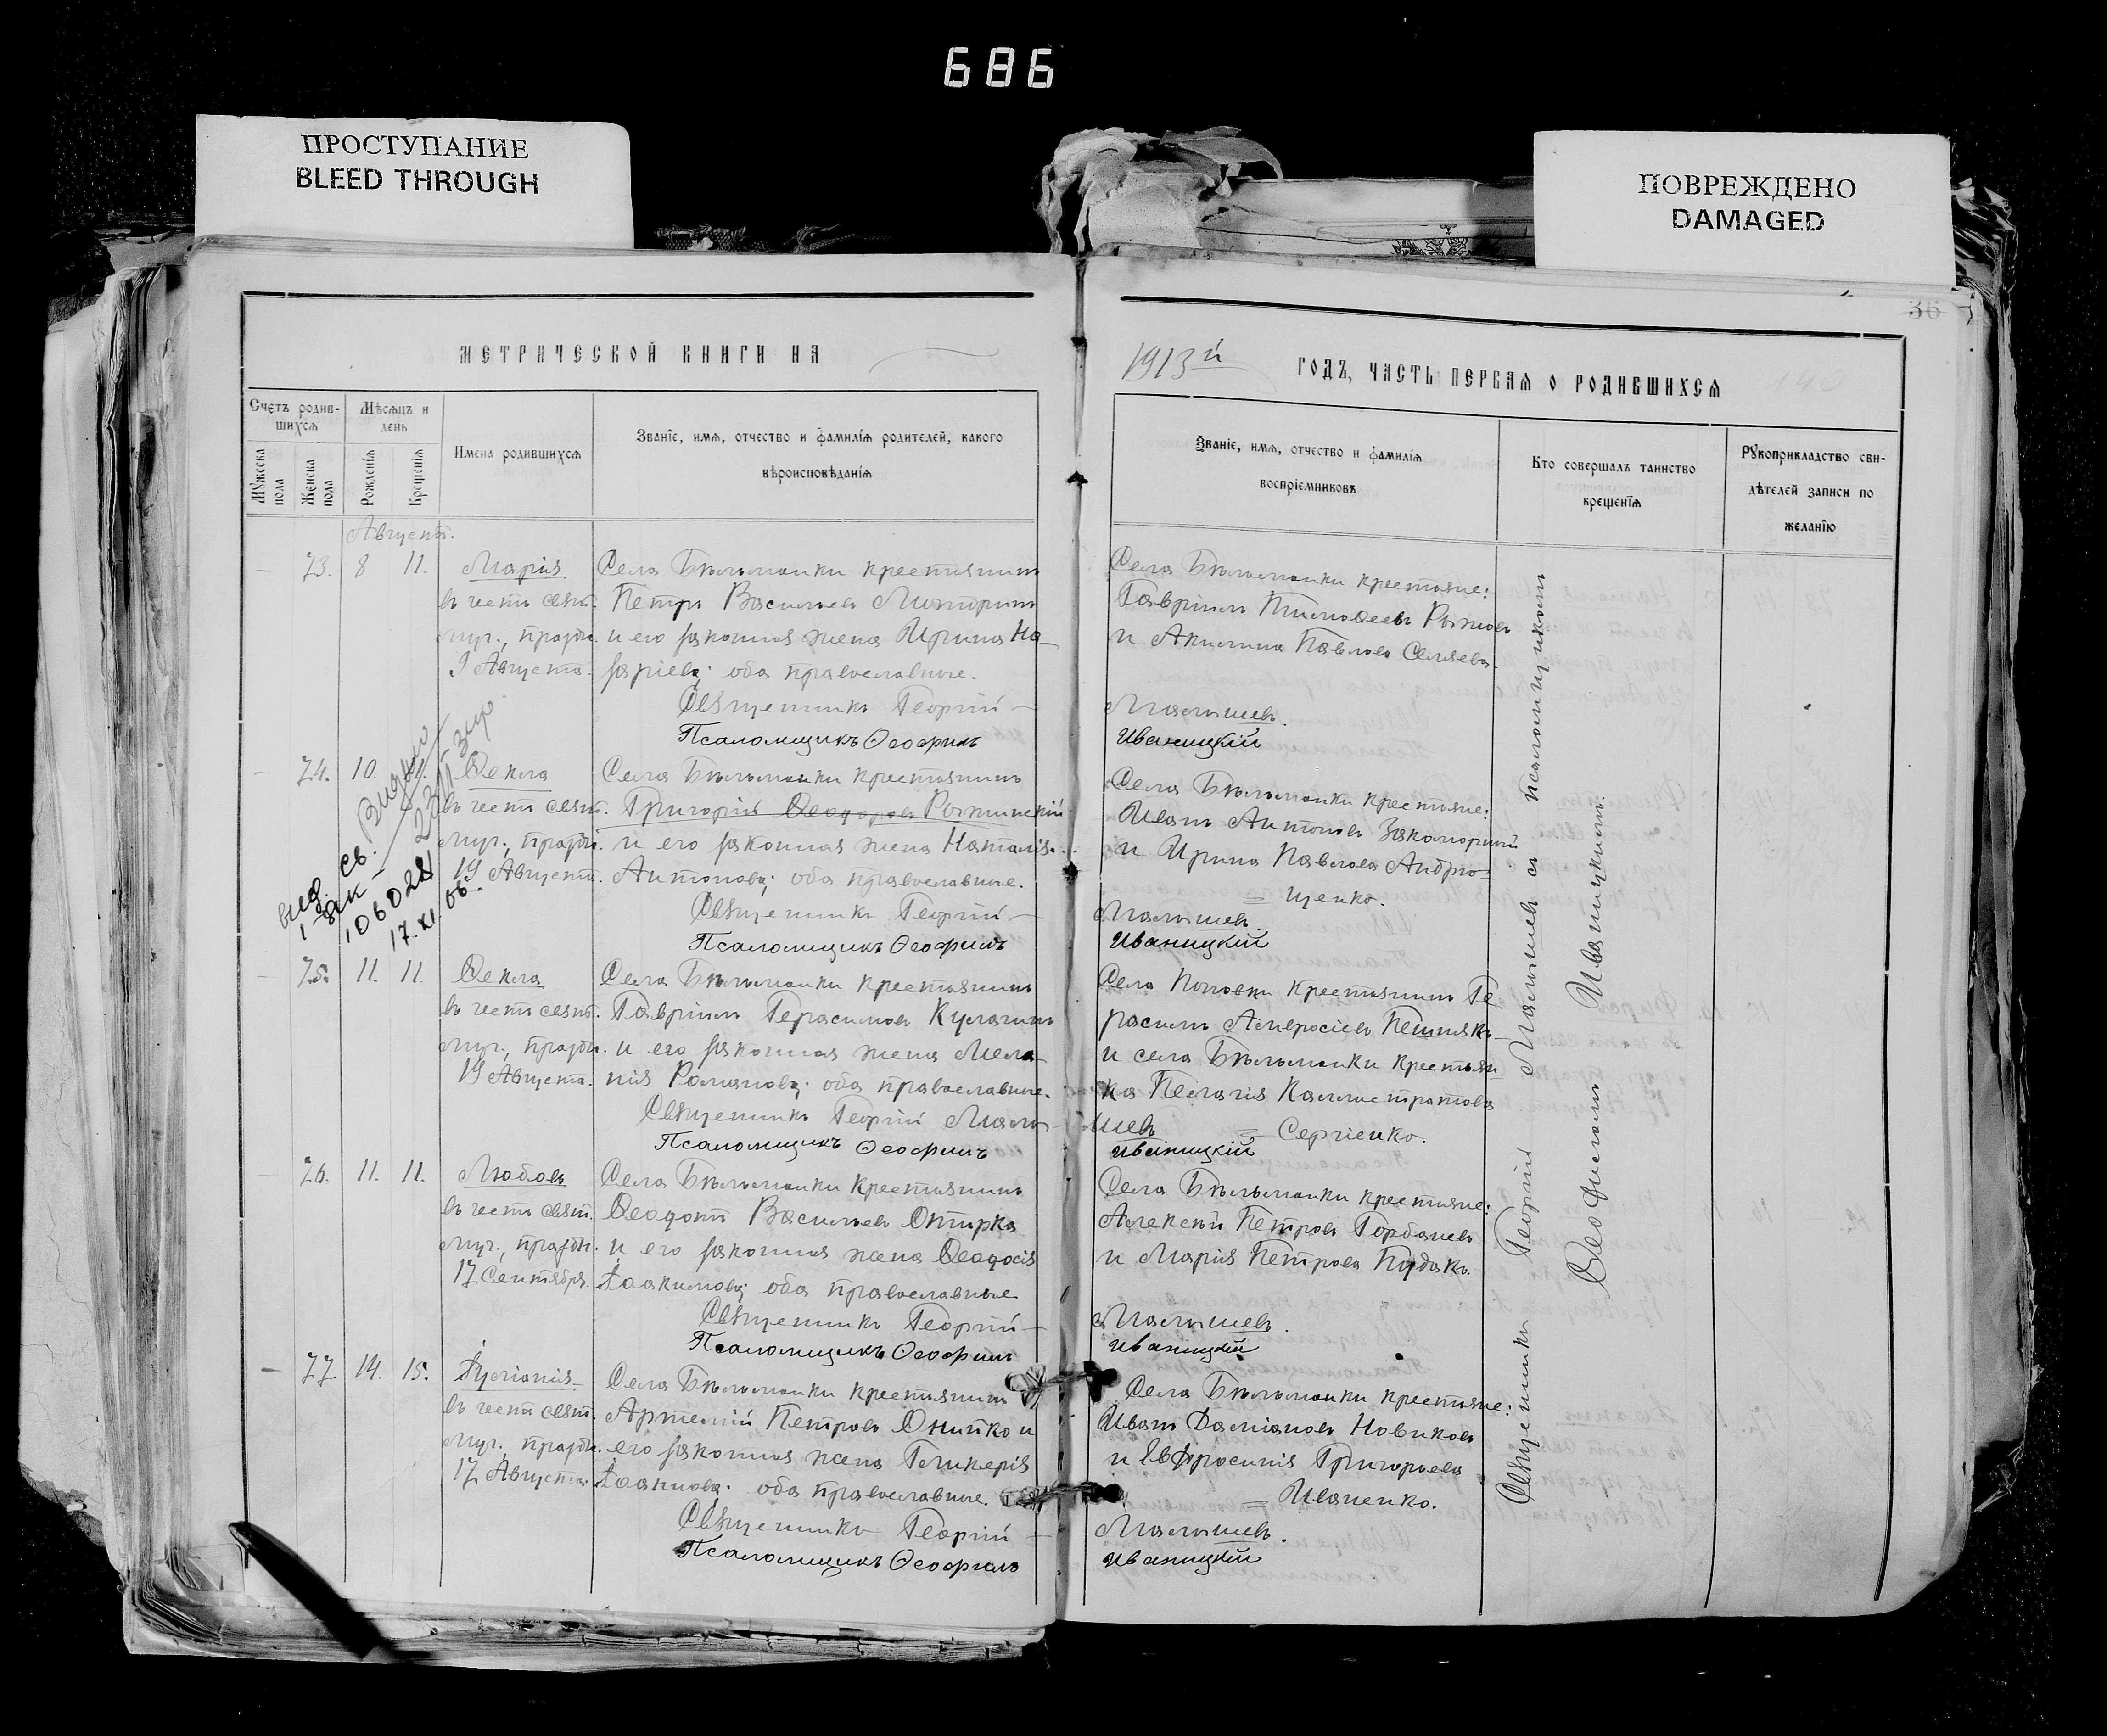 686
ПРОСТУПАНИЕ
BLEED THROUGH
ПОВРЕЖДЕНО
DAMAGED
36
МЕТРИЧЕСКОЙ КНИГИ НА
1913й ГОДЪ, ЧАСТЬ ПЕРВАЯ О РОДИВШИХСЯ
Счетъ родив-
шихся
Мужеска пола
Женска пола
Мѣсяцъ и
день
Рожденія
Крещенія
Имена родившихся
Званіе, имя, отчество и фамилія родителей, какого
вѣроисповѣданія
Званіе, имя, отчество и фамилія
воспріемниковъ
Кто совершалъ таинство
крещенія
Рукоприкладство сви-
дѣтелей записи по
желанію
Августъ.
73. 8 11. Марія
въ честь свят.
муч., праздн.
9 Августа.
Села Бѣльманки крестьянинъ
Петръ Васильевъ
и его законная жена Ирина На-
заріева; оба православные.
Священникъ Георгій
Псаломщикъ Ѳеофилъ
Села Бѣльманки крестьяне:
Гавріилъ Тимоѳеевъ Рыжовъ
и Акилина Павлова
Малышевъ.
Иваницкій
74. 10. Ѳекла
въ честь свят.
муч., праздн.
19 Августа.
Села Бѣльманки крестьянинъ
Григорій Ѳеодоровъ
и его законная жена Наталія
Антонова; оба православные.
Священникъ Георгій
Псаломщикъ Ѳеофилъ
Села Бѣльманки крестьяне:
Иванъ Антоновъ
и Ирина Павлова Андрю-
щенко.
Малышевъ.
Иваницкій
выд. св.
106028
17.XI.66.
75. 11. 11. Ѳекла
въ честь свят.
муч., праздн.
19 Августа.
Села Бѣльманки крестьянинъ
Гавріилъ Герасимовъ Кулагинъ
и его законная жена Мела-
нія Романова; оба православные.
Священникъ Георгій Малы-
Псаломщикъ Ѳеофилъ
Села Поповки крестьянинъ Ге-
расимъ Амвросіевъ
и села Бѣльманки крестьян-
ка Пелагія Каллистратова
Сергіенко.
шевъ
Иваницкій
76. 11. 11. Любовь
въ честь свят.
муч., праздн.
17 Сентября.
Села Бѣльманки крестьянинъ
Ѳеодотъ Васильевъ
и его законная жена Ѳеодосія
Іоакимова; оба православные
Священникъ Георгій
Псаломщикъ Ѳеофилъ
Села Бѣльманки крестьяне:
Алексѣй Петровъ Горбачевъ
и Марія Петрова
Малышевъ.
Иваницкій
77. 14. 15. Іуліанія
въ честь свят.
муч., праздн.
17 Августа.
Села Бѣльманки крестьянинъ
Артемій Петровъ Онипко и
его законная жена Гликерія
Іоаннова; оба православные.
Священникъ Георгій
Псаломщикъ Ѳеофилъ
Села Бѣльманки крестьяне:
Иванъ Даміановъ Новиковъ
и Евфросинія Григорьева
Иваненко.
Малышевъ.
Иваницкій
Священникъ Георгій Малышевъ съ псаломщикомъ
Ѳеофиломъ Иваницкимъ.